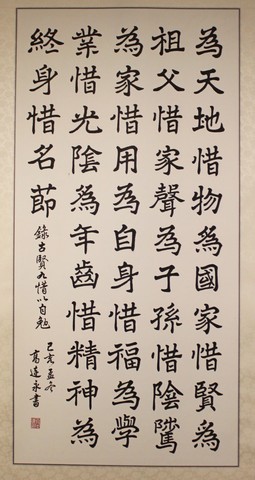 為天地惜物為國家惜賢為
祖父惜家聲為子孫惜陰騭
為家惜用為自身惜福為學
業惜光陰為年齒惜精神為
終身惜名節 錄古賢九惜以自勉
己亥孟冬
高永書